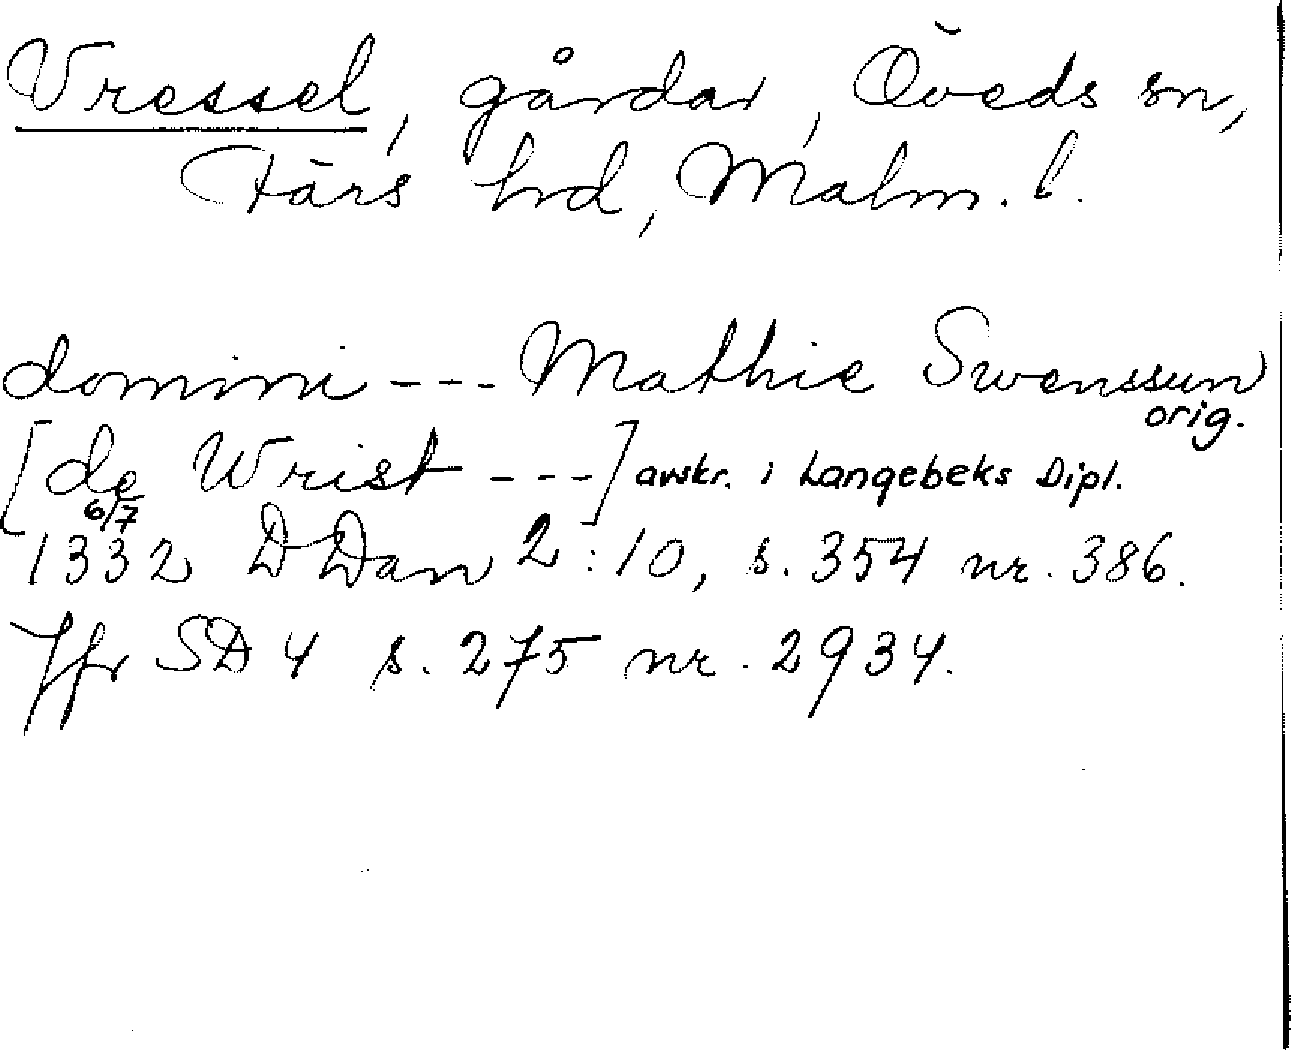 Vressel, gårdar, Öveds sn,
Färs hd, Malm. l.
domini --- Mathie Swenssun
orig.
[de Wrist ---] avskr. i Langebeks Dipl.
6/7
1332 DDan 2:10, s. 354 nr. 386.
Jfr SD 4 s. 275 nr. 2934.